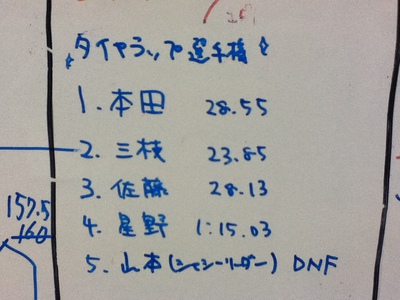 タイヤラップ選手権
1. 本田 28.55
2. 三枝 23.85
3. 佐藤 28.13
4. 星野 1:15.03
5. 山本(シャシーリーダー) DNF
157.5
160